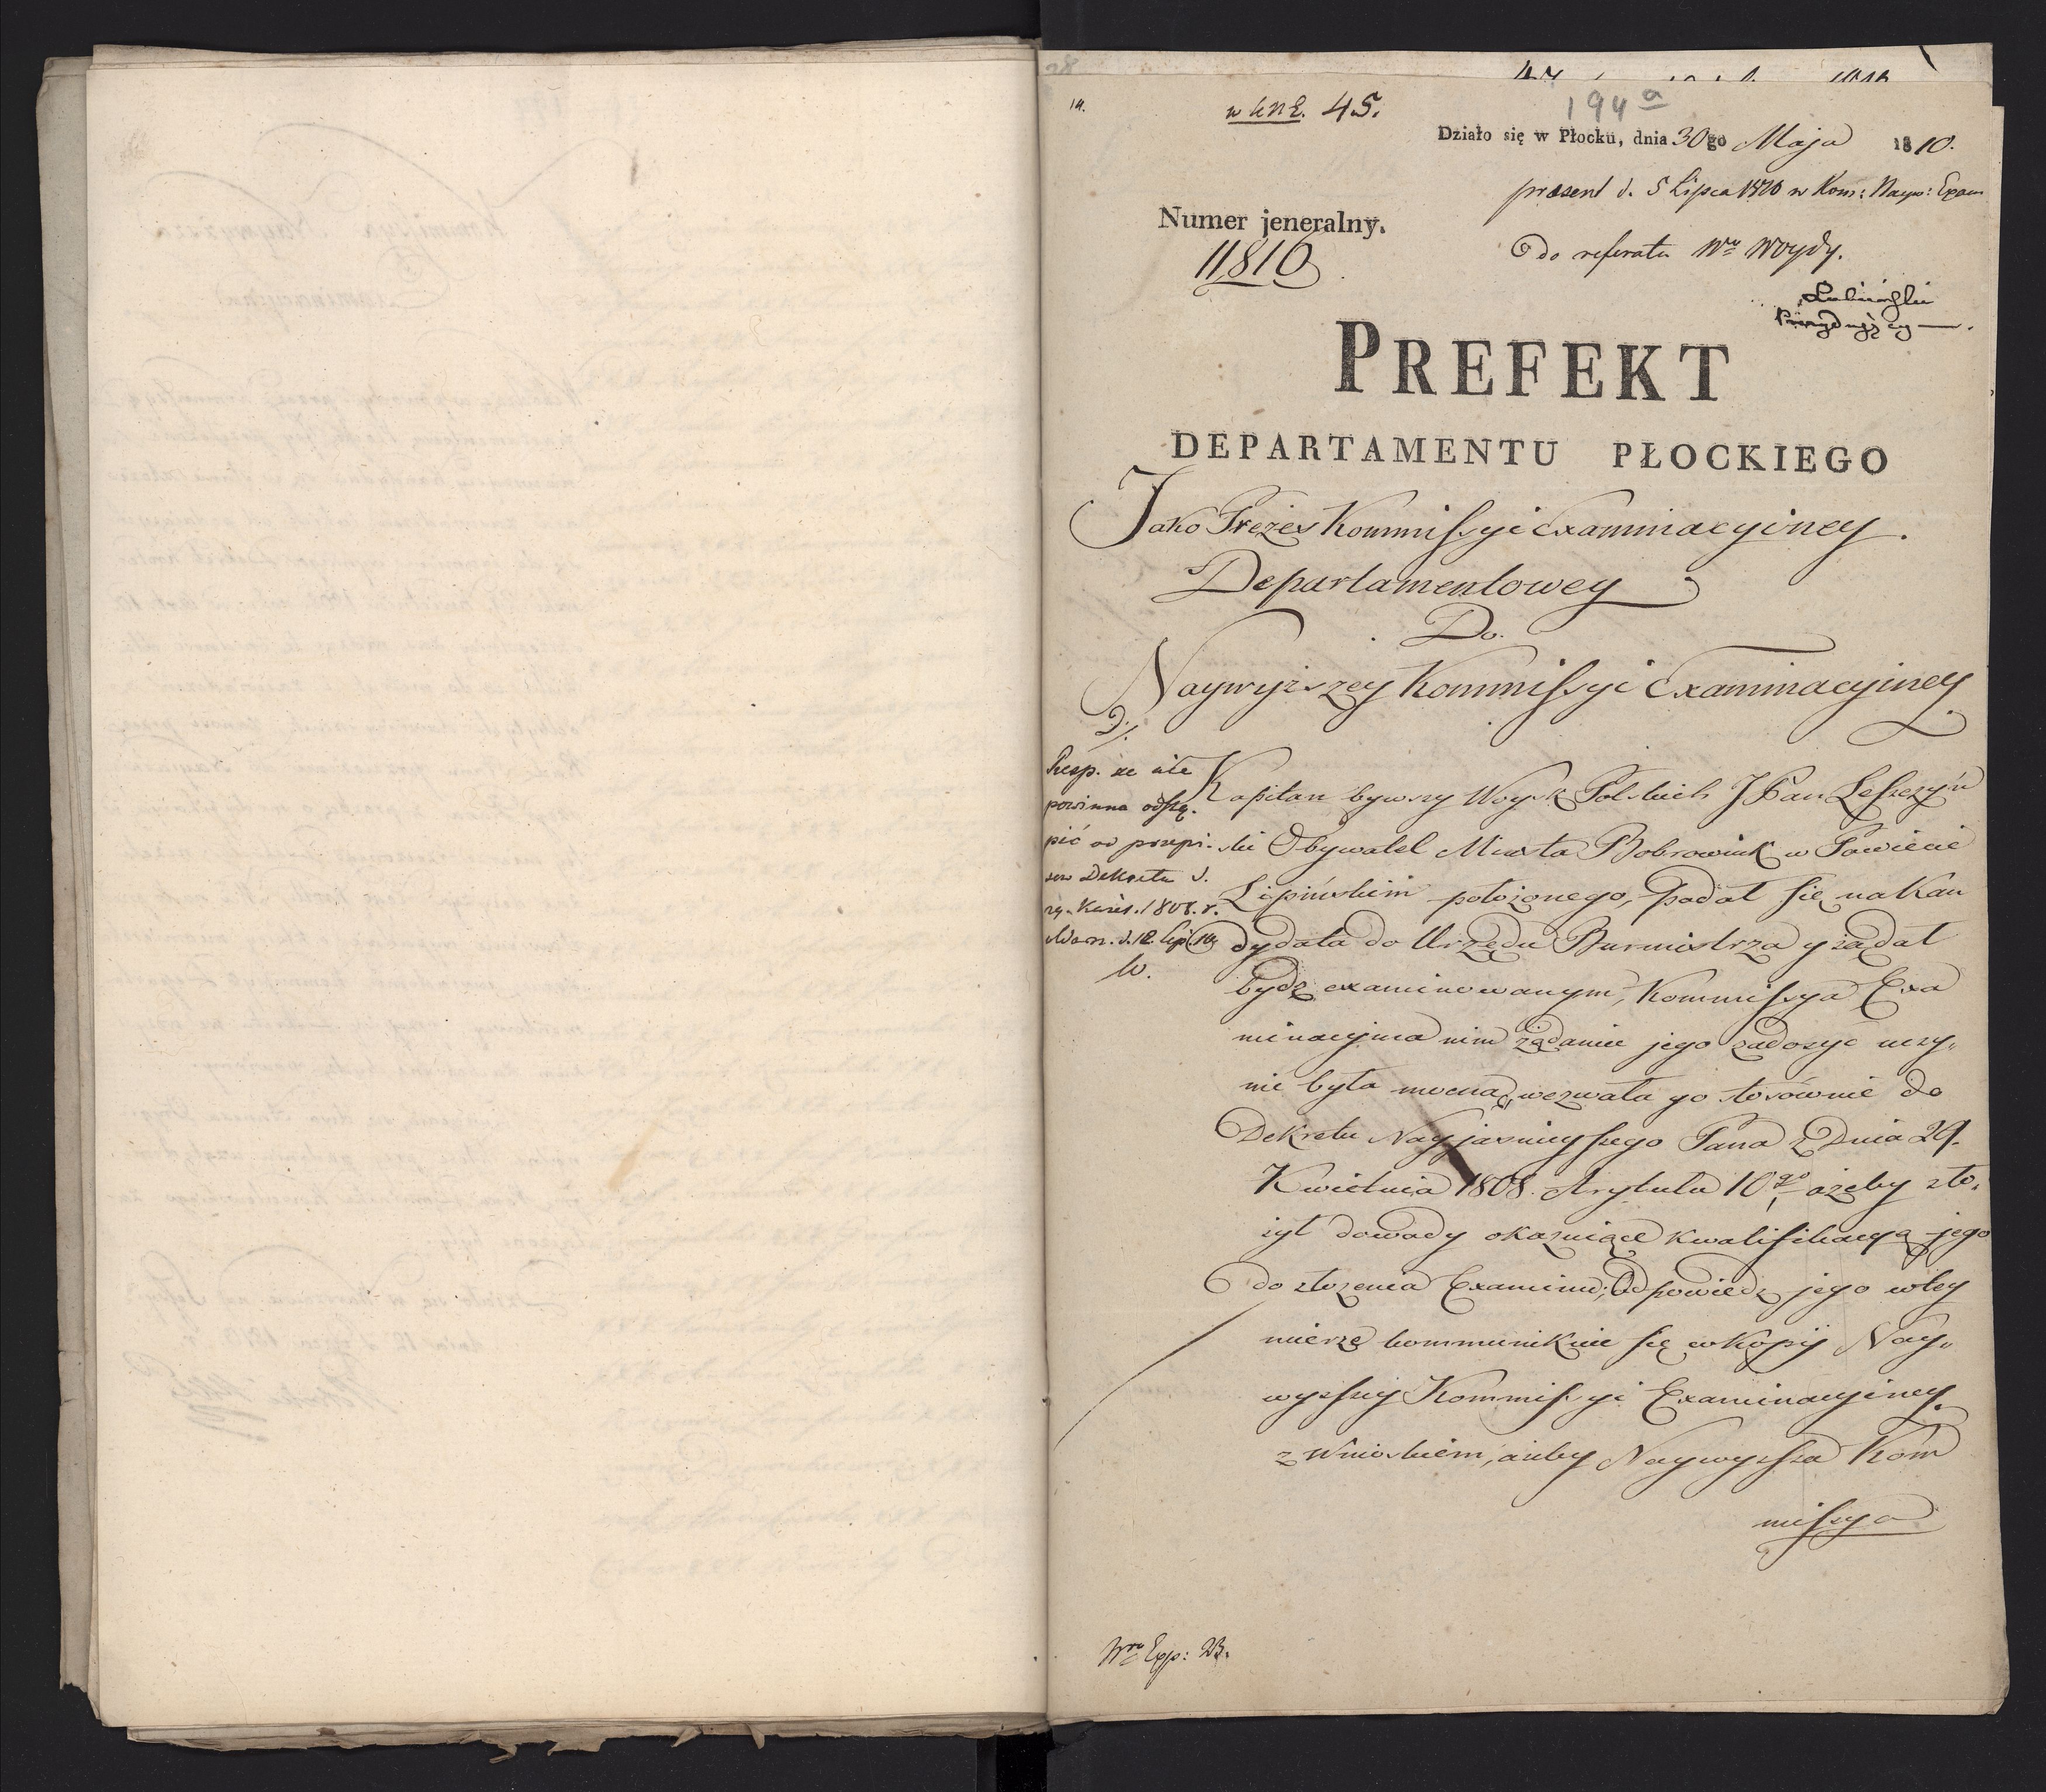 194a
14.
w KNE. 45.
Działo się w Płocku, dnia 30go Maja 1810.
præsent d. 5 Lipca 1810 w Kom: Nayw: Exam
Numer jeneralny.
11810
do referatu Wo Woydy.
Łubieński
Prezydujący
PREFEKT
DEPARTAMENTU PŁOCKIEGO
Jako Prezes Kommissyi Examinacyiney
Departamentowey
Do
Naywyższey Kommissyi Examinacyiney
Resp. że nie
powinna odstą-
pić od przepi-
sów Dekretu d.
29. Kwiet. 1808. r.
d. 12. Lip. 1810
W.
Kapitan bywszy Woysk Polskich JPan Leszczyń
ski Obywatel Miasta Bobrownik w Powiecie
Lipińskim położonego, podał się na Kan
dydata do Urzędu Burmistrza y żądał
bydź examinowanym, Kommissya Exa
minacyina nim żądaniu jego zadosyć uczy„
nić była mocną, wezwała go stosównie do
Dekretu Nayjaśnieyszego Pana z Dnia 29.
Kwietnia 1808. Artykułu 10go ażeby zło„
żył dowody okazuiące kwalifikacyą jego
do złożenia Examinu; Odpowiedź jego w tey
mierze kommunikuie się w Kopij Nay„
wyższey Kommissyi Examinacyiney
z Wnioskiem, ażeby Naywyższa Kom
missya
Nro Exp: 23.